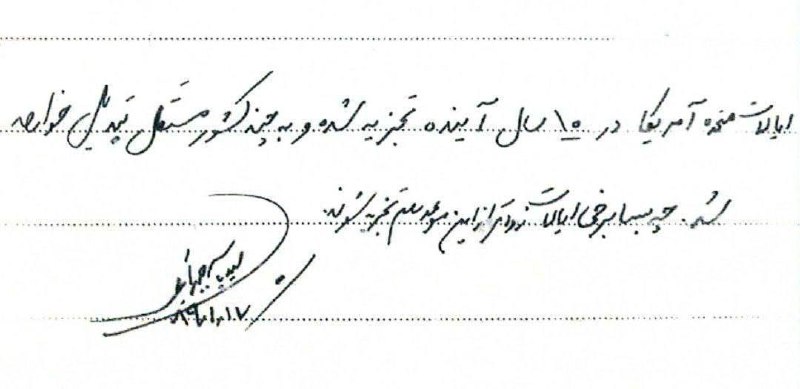 ایالات متحده آمریکا در ۱۵ سال آینده تجزیه شده و به چند کشور مستقل تبدیل خواهد
شد. چه بسا برخی ایالات زودتر از این موعد هم تجزیه شوند.
۸۹،۱،۱۷